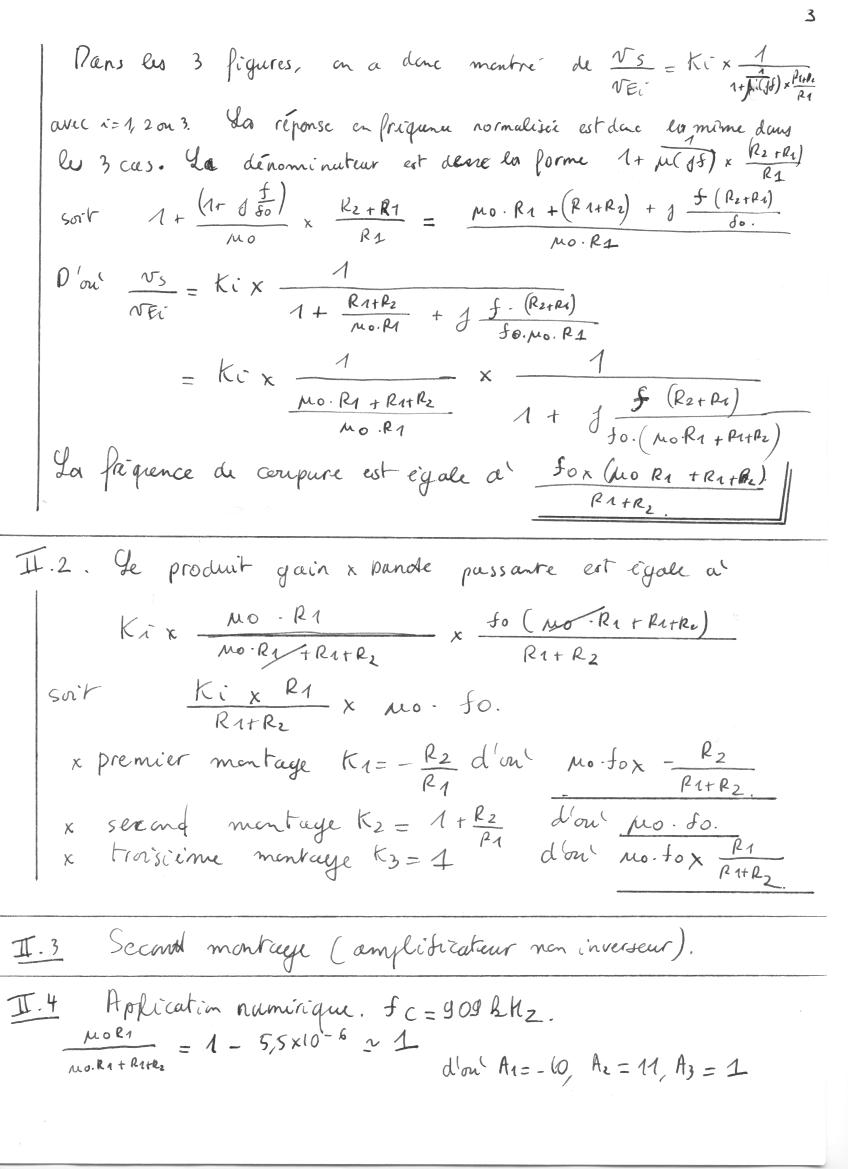 3
Dans les 3 figures, on a donc montré de vs/vEi = Ki × 1/(1+ 1/μ(jf) × (R1+R2)/R1)
avec i=1, 2 ou 3. La réponse en fréquence normalisée est donc la même dans
les 3 cas. Le dénominateur est de la forme 1+ 1/μ(jf) × (R2+R1)/R1
soit 1+ (1+ j f/f0)/μ0 × (R2+R1)/R1 = (μ0·R1 + (R1+R2) + j f(R2+R1)/f0.)/(μ0·R1)
D'où vs/vEi = Ki × 1/(1 + (R1+R2)/(μ0·R1) + j f·(R2+R1)/(f0·μ0·R1))
= Ki × 1/((μ0·R1+R1+R2)/(μ0·R1)) × 1/(1 + j f(R2+R1)/(f0·(μ0·R1+R1+R2)))
La fréquence de coupure est égale à f0×(μ0 R1 +R1+R2)/(R1+R2)
II.2. Le produit gain × bande passante est égale à
Ki × (μ0·R1)/(μ0·R1+R1+R2) × f0(μ0·R1+R1+R2)/(R1+R2)
soit (Ki × R1)/(R1+R2) × μ0·f0.
× premier montage K1= -R2/R1 d'où μ0·f0× -R2/(R1+R2)
× second montage K2 = 1+R2/R1 d'où μ0·f0.
× troisième montage K3 = 1 d'où μ0·f0× R1/(R1+R2)
II.3 Second montage (amplificateur non inverseur).
II.4 Application numérique. fC = 909 kHz.
μ0R1/(μ0·R1+R1+R2) = 1 - 5,5×10^-6 ≃ 1
d'où A1=-10, A2 = 11, A3 = 1